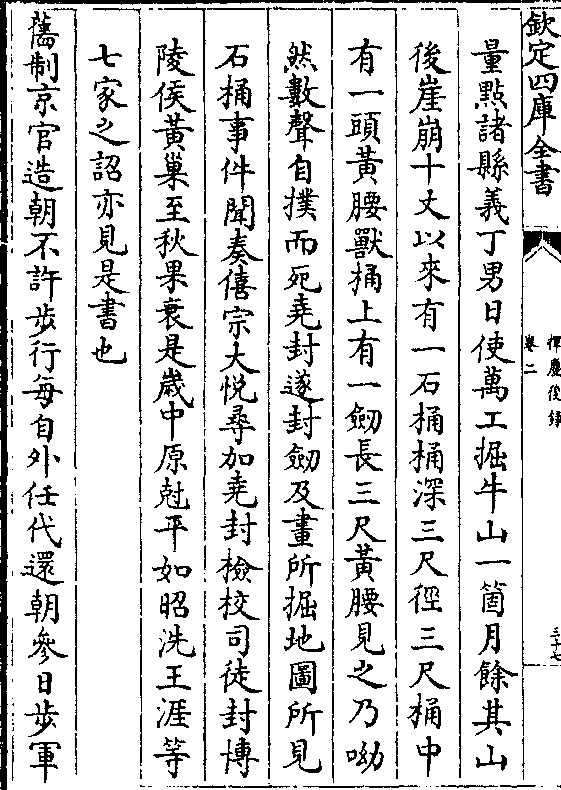 欽定四庫全書
揮麈後錄
卷二
三十七
量點諸縣義丁男日使萬工掘牛山一箇月餘其山
後崖崩十丈以來有一石桶桶深三尺徑三尺桶中
有一頭黃腰獸桶上有一劒長三尺黃腰見之乃呦
然數聲自撲而死堯封遂封劒及畫所掘地圖所見
石桶事件聞奏僖宗大悅尋加堯封檢校司徒封博
陵侯黃巢至秋果衰是歲中原尅平如昭洗王涯等
七家之詔亦見是書也
舊制京官造朝不許步行每自外任代還朝參日步軍